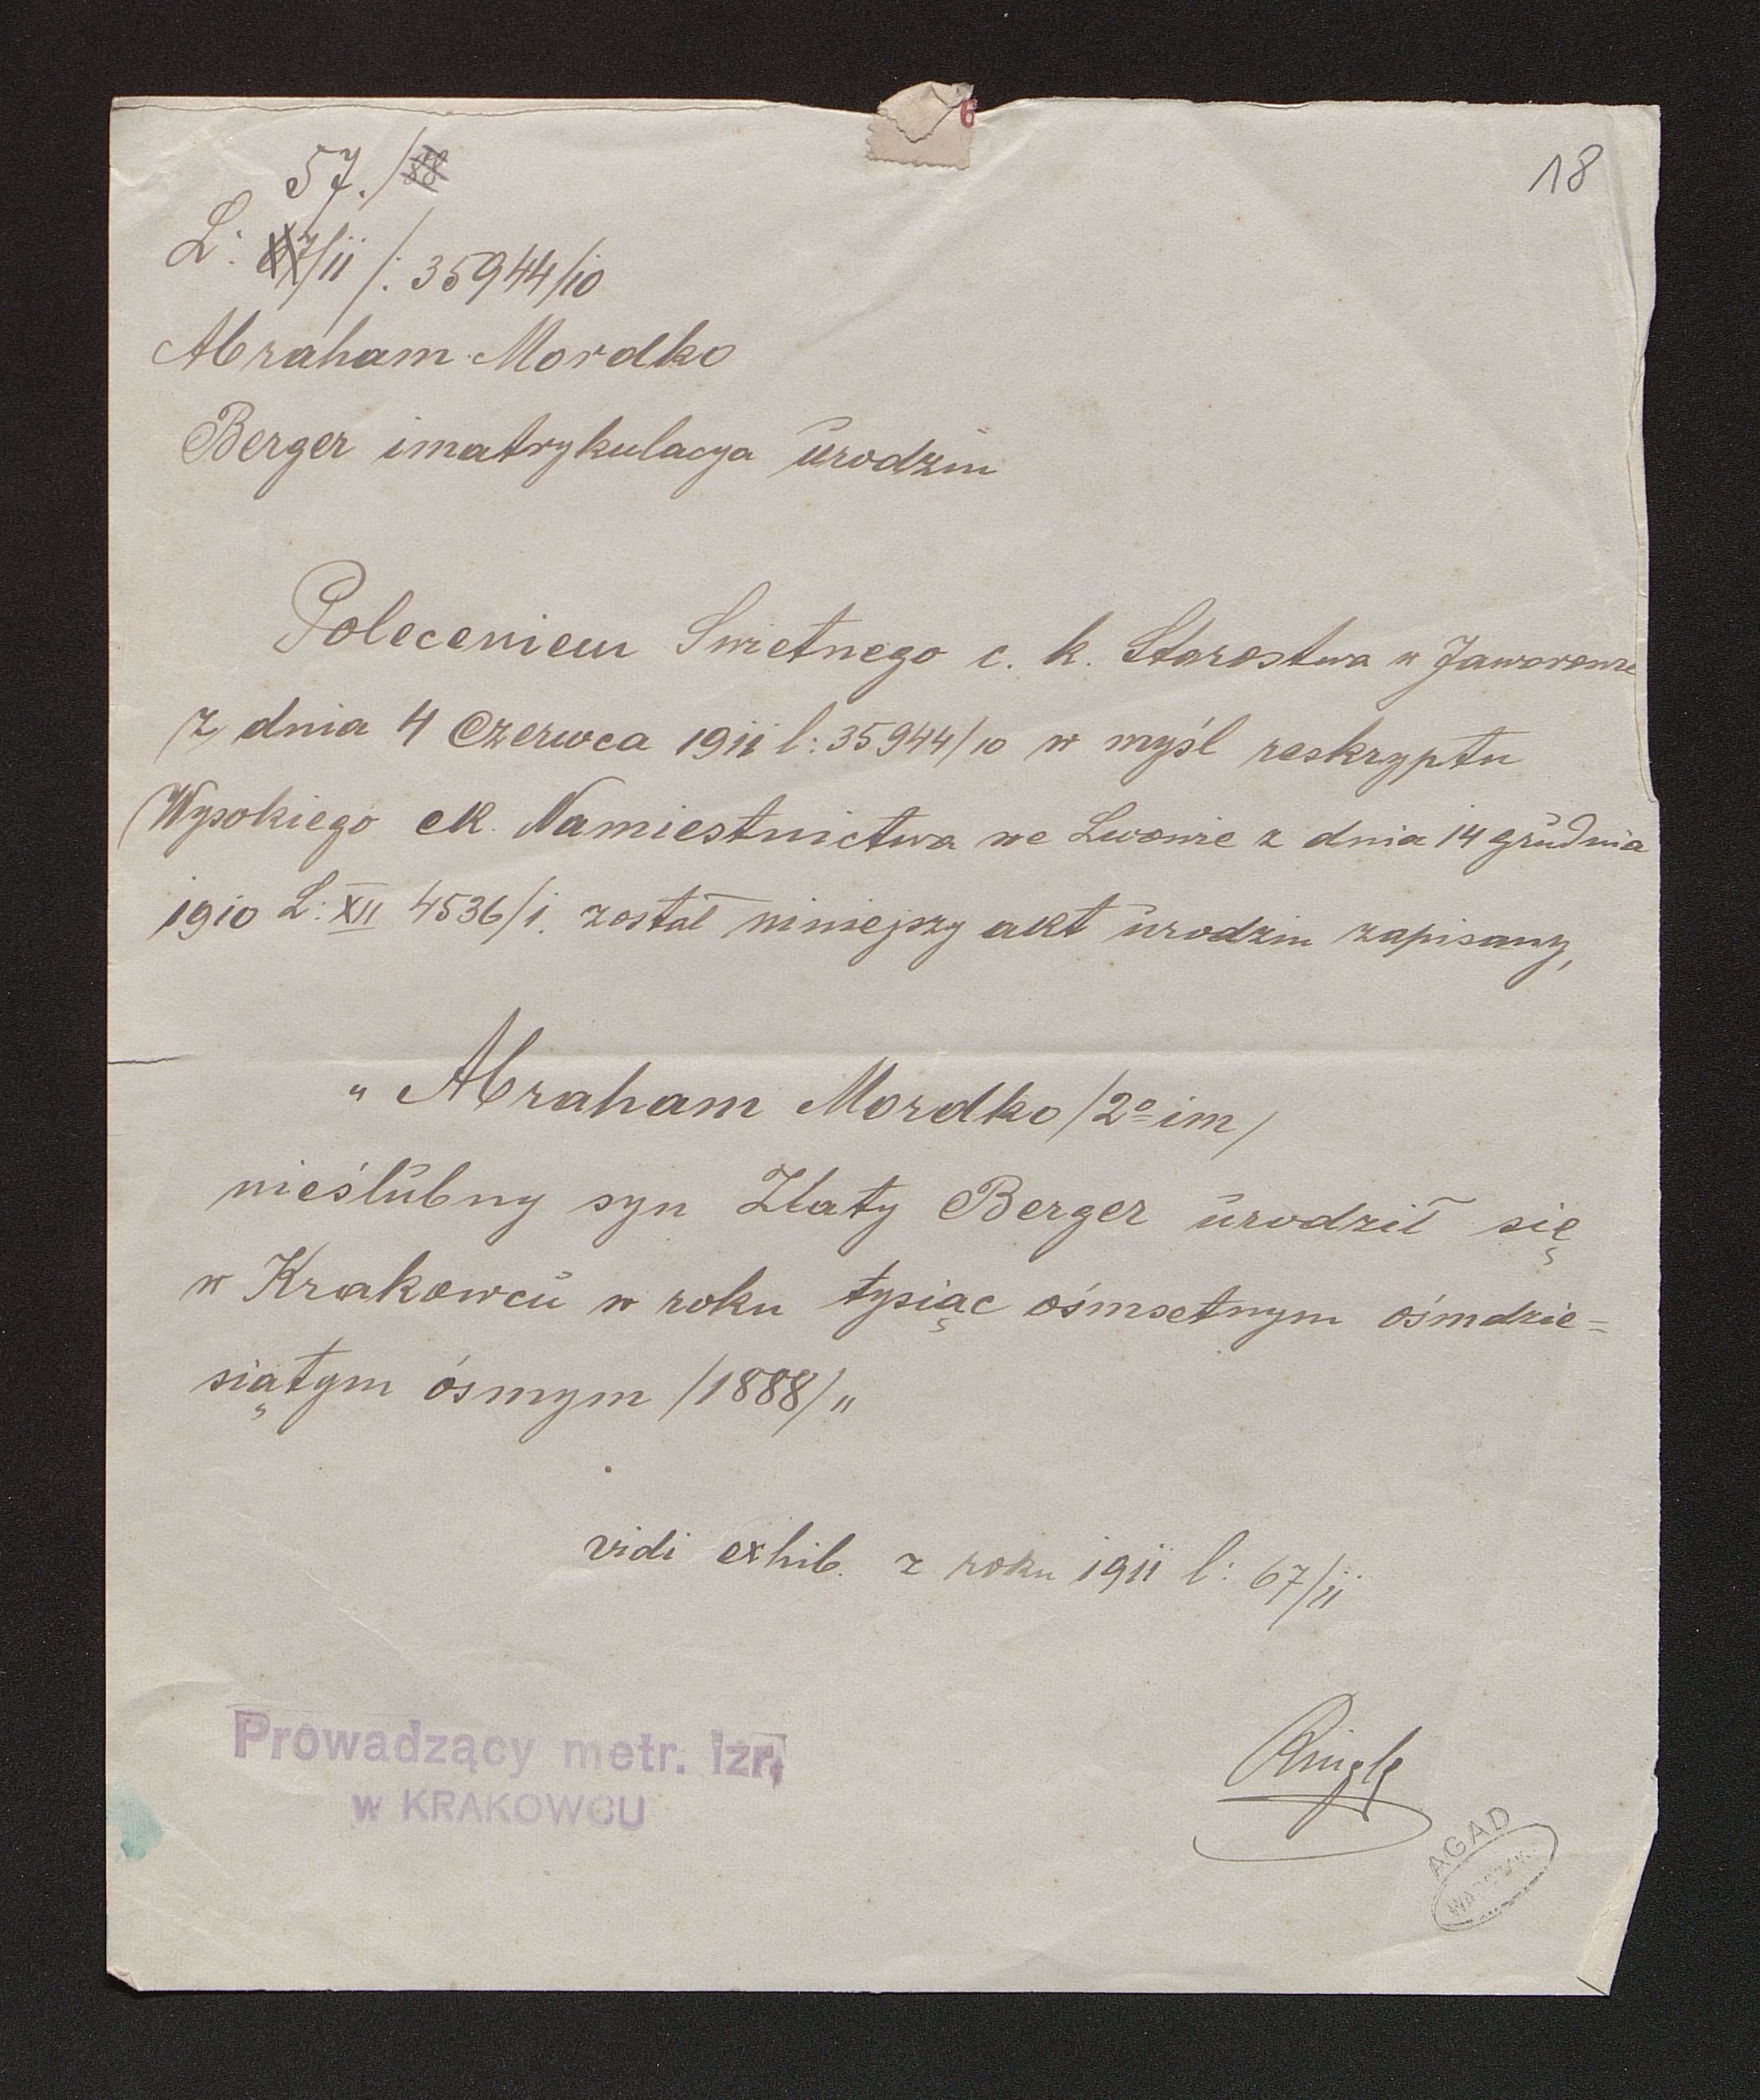 18
57./
L: /11 /: 35944/10
Abraham Mordko
Berger imatrykulacya urodzin
Poleceniem Swietnego c. k. Starostwa w Jaworowie
z dnia 4 Czerwca 1911 l: 35944/10 w myśl reskryptu
Wysokiego ck. Namiestnictwa we Lwowie z dnia 14 grudnia
1910 L: XII 4536/1. został niniejszy akt urodzin zapisany,
„ Abraham Mordko /2º im/
nieślubny syn Złaty Berger urodził się
w Krakowcu w roku tysiąc ośmsetnym ośmdzie=
siątym ósmym /1888/ "
vidi exhib. z roku 1911 l: 67/11
Prowadzący metr. Izr.
w KRAKOWCU
AGAD